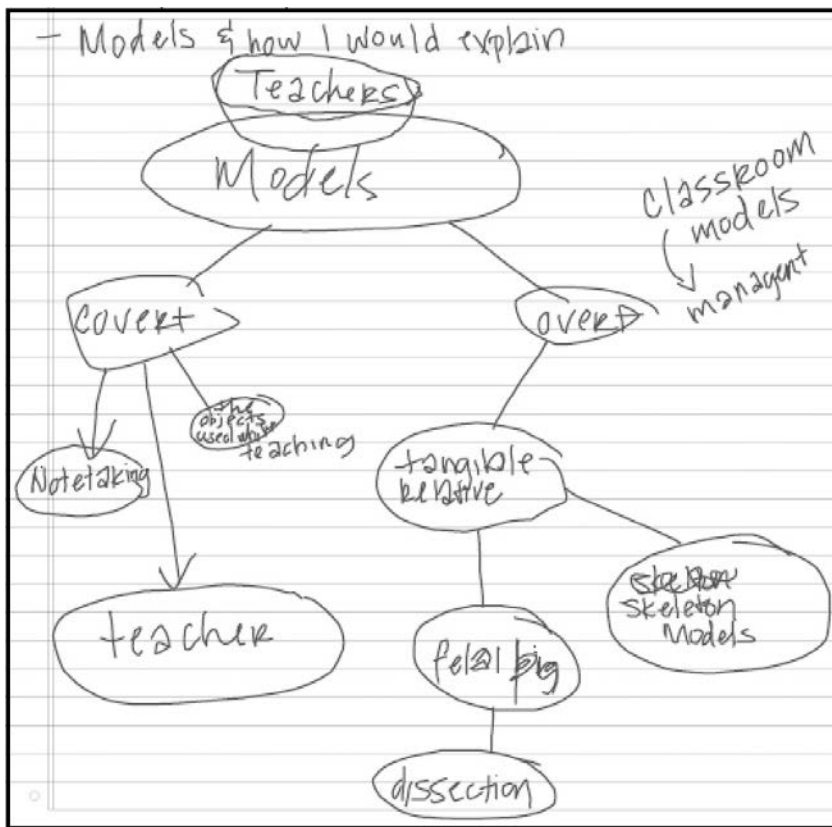 - Models & how I would explain
Teachers
Models
Classroom
models
managent
covert
overt
the
objects
used while
teaching
Notetaking
tangible
relative
teacher
skeleton
skeleton
Models
fetal pig
dissection